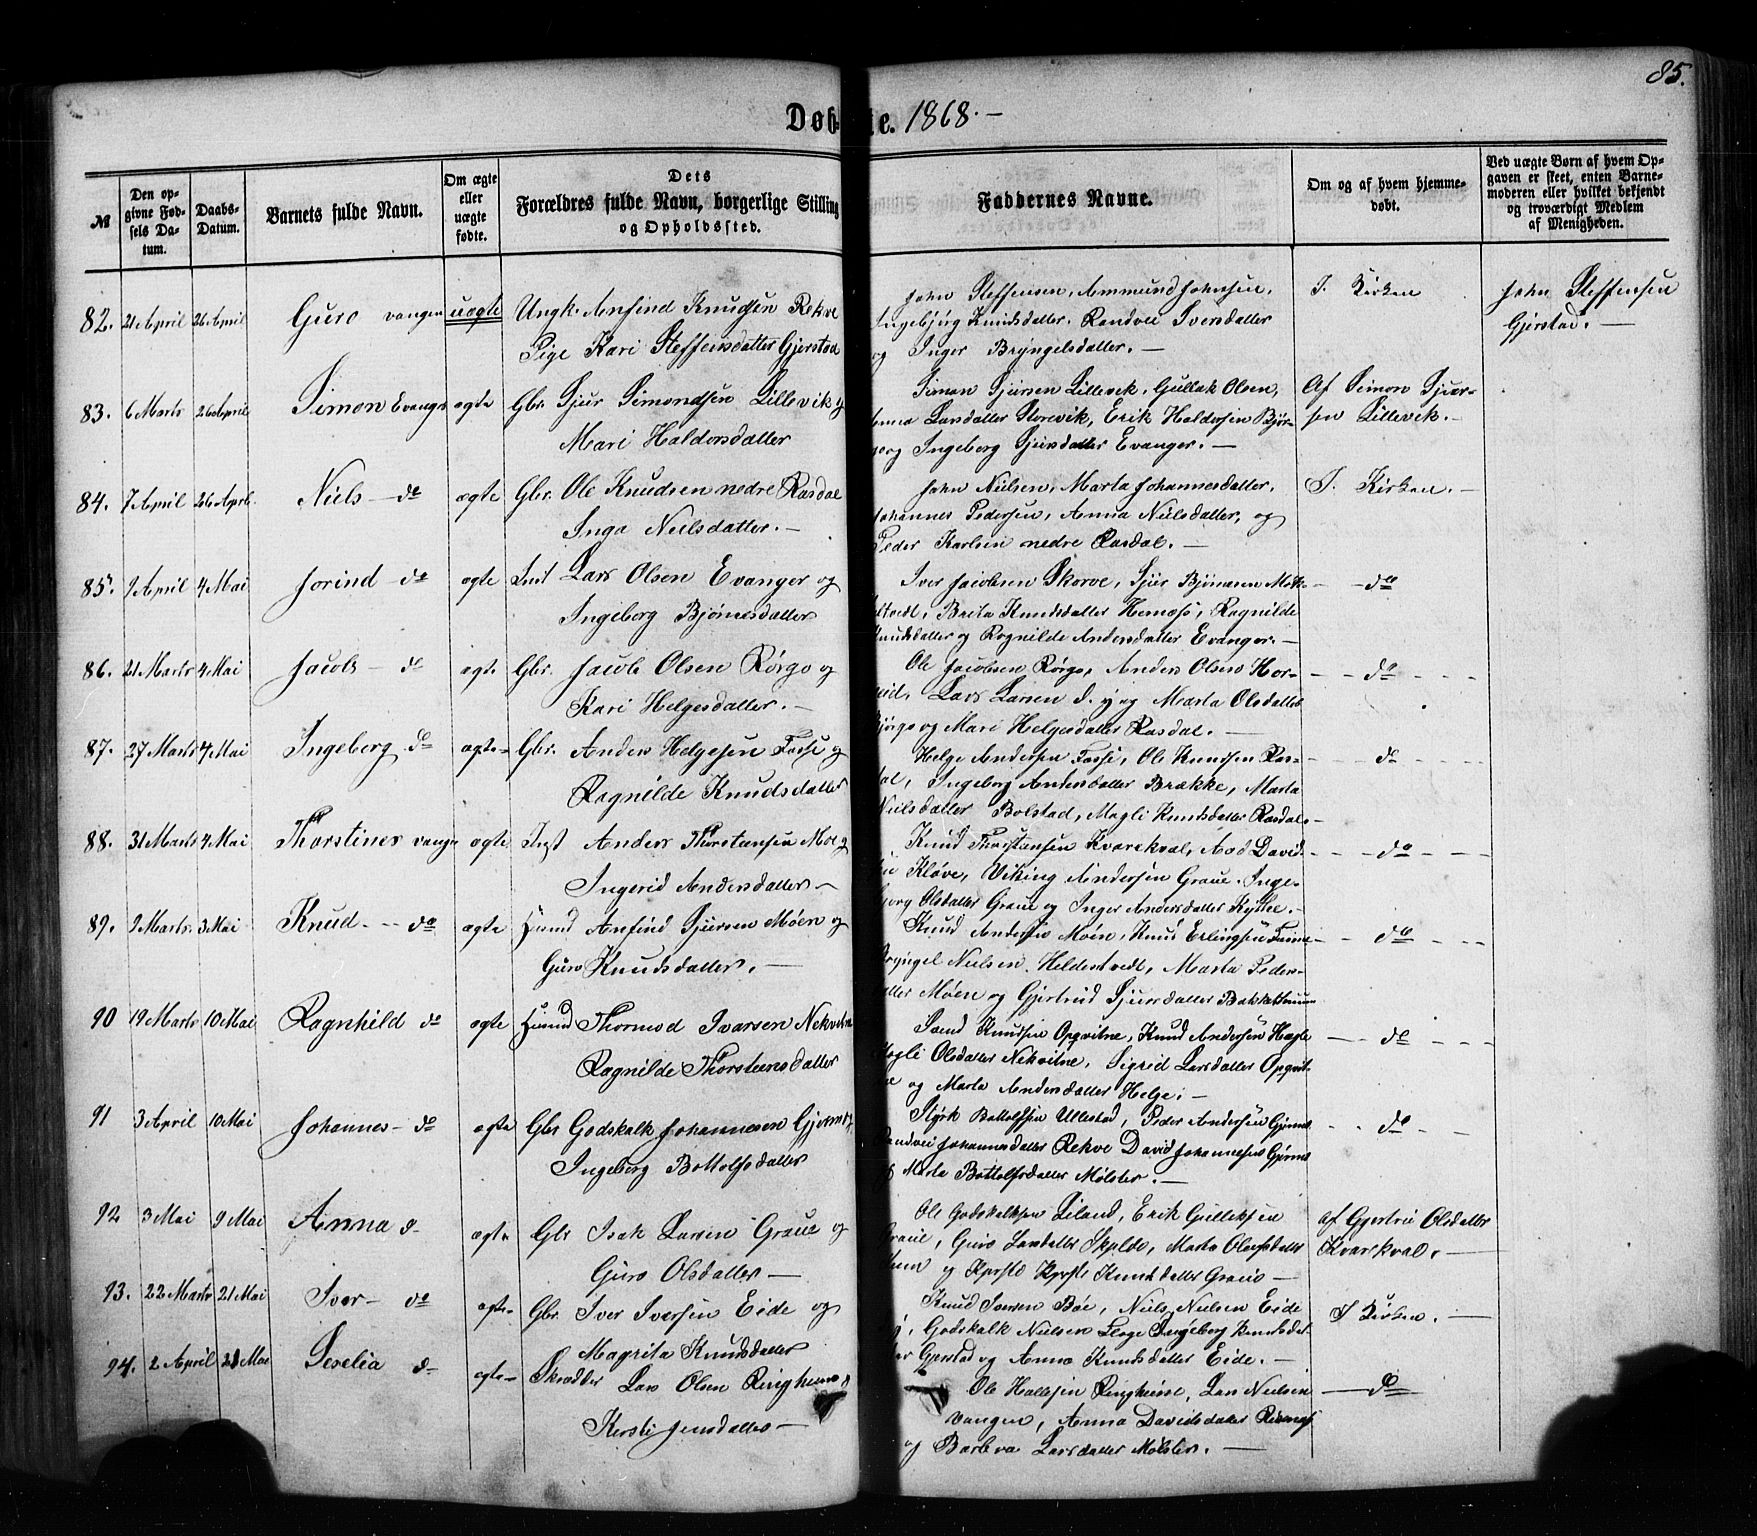 85.
Døb te. 1868.—
№
Den op-
givne Fød-
sels Da-
tum.
Daabs-
Datum.
Barnets fulde Navn.
Om ægte
eller
uægte
fødte.
Dets
Forældres fulde Navn, borgerlige Stilling
og Opholdssted.
Faddernes Navne.
Om og af hvem hjemme-
døbt.
Ved uægte Børn af hvem Op-
gaven er skeet, enten Barne-
moderen eller hvilket bekjendt
og troværdigt Medlem
af Menigheden.
82. 21 April 26 April Guro vangen uægte Ungk. Anfind Knudsen Rekve
Pige Kari Steffensdatter Gjerstad
John Steffensen, Ammund Johnsen,
Ingebjørg Knudsdatter. Randvei Iversdatter
og Inger Bryngelsdatter.—
I. Kirken
John Steffensen
Gjerstad.—
83. 6 Marts 26 April Simon Evanger ægte Gbr. Sjur Simondsen Lillevik og
Mari Haldorsdatter
Simon Sjursen Lillevek, Gullak Olsen,
Anna Larsdatter Storevik, Erik Haldorsen Bjør-
og Ingeborg Sjursdatter Evanger.—
Af Simon Sjur-
sen Lillevek.—
84. 7 April 26 April Niels — do ægte Gbr. Ole Knudsen nedre Rasdal
Inga Neilsdatter.—
John Nielsen, Marta Johannesdatter,
Johannes Pedersen, Anna Nielsdatter, og
Peder Karlsen nedre Rasdal.—
I. Kirken.—
85. 9 April 4 Mai Jorind — do ægte Inst Lars Olsen Evanger og
Ingeborg Bjørnesdatter
Iver Jacobsen Skorve, Sjur Bjønsen Møk-
Brita Knudsdatter Hernæs, Ragnilde
Knudsdatter og Ragnilde Andersdatter Evanger.—
— do
86. 21 Marts 4 Mai Jacob — do ægte Gbr. Jacob Olsen Rørge og
Kari Helgesdatter.—
Ole Jacobsen Rørge, Anders Olsen Hor-
Lars Larsen d. yng Marta Olsdatter
og Mari Helgesdatter Rasdal.—
— do
87. 27 Marts 4 Mai Ingeberg do ægte— Gbr. Anders Helgesen Fosse og
Ragnilde Knudsdatter
Helge Andersen Fosse, Ole Knudsen Ras-
dal, Ingeborg Andersdatter Brække, Marta
Neilsdatter Bolstad, Magli Knudsdatter Rasdal—
— do
88. 31 Marts 4 Mai Thorstines vangen ægte Inst Anders Thorstensen Moe og
Ingerid Andersdatter—
Knud Thorstensen Kvarekval, Aad David-
Kløve, Viking Andersen Graue. Inge-
borg Olsdatter Graue og Inger Andersdatter Kytke.—
— do
89. 9 Marts 3 Mai Knud — do ægte Huusd Anfind Sjursen Møen og
Guro Knudsdatter.—
Knud Andersen Møen, Knud Erlingsen
Bryngel Nielsen Heldestvedt, Marta Peders-
datter Møen og Gjertrud Sjursdatter
— do
90 19 Marts 10 Mai Ragnhild do ægte Huusd Thormod Ivarsen Nekvitne
Ragnilde Thorsteensdatter
Knudsen Opqvitne, Knud Andersen
Magli Olsdatter Nekvitne, Sigrid Larsdatter Opqvit-
ne og Marta Andersdatter Helge.—
— do
91 3 April 10 Mai Johannes — do ægte Gbr Godskalk Johannesen
Ingeborg Bottolfsdatter
Styrk Bottolfsen Ullestad, Peder Andersen
Randvei Johannesdatter Rekve David Johannesen
og Marta Bottolfsdatter Mølster.—
— do
92 3 Mai 9 Mai Anna d— ægte Gbr Isak Larsen Graue og
Guro Olsdatter—
Ole Godskalksen Liland, Erik Gulleksen
Graue, Guro Larsdatter Skjelde, Marta Olavsdatter
og Kyrste Knudsdatter Graue—
af Gjertrue Olsdatter
Kvarekval.—
93. 22 Marts 21 Mai Iver — do ægte— Gbr. Iver Iversen Eide og
Magrita Knudsdatter
Knud Iversen Bøe, Niels Nielsen Eide
Godskalk Nielsen Fløge Ingeborg Knudsdat-
ter Gjerstad og Anna Knudsdatter Eide.—
I Kirken.—
94. 2 April 21 Mai Seselia d— ægte— Skrædder Lars Olsen Ringheim og
Kersti Jensdatter—
Ole Hallesen Ringheim, Lars Nielsen
Vangen, Anna Davidsdatter
og Barbra Larsdatter Mølster.—
— do